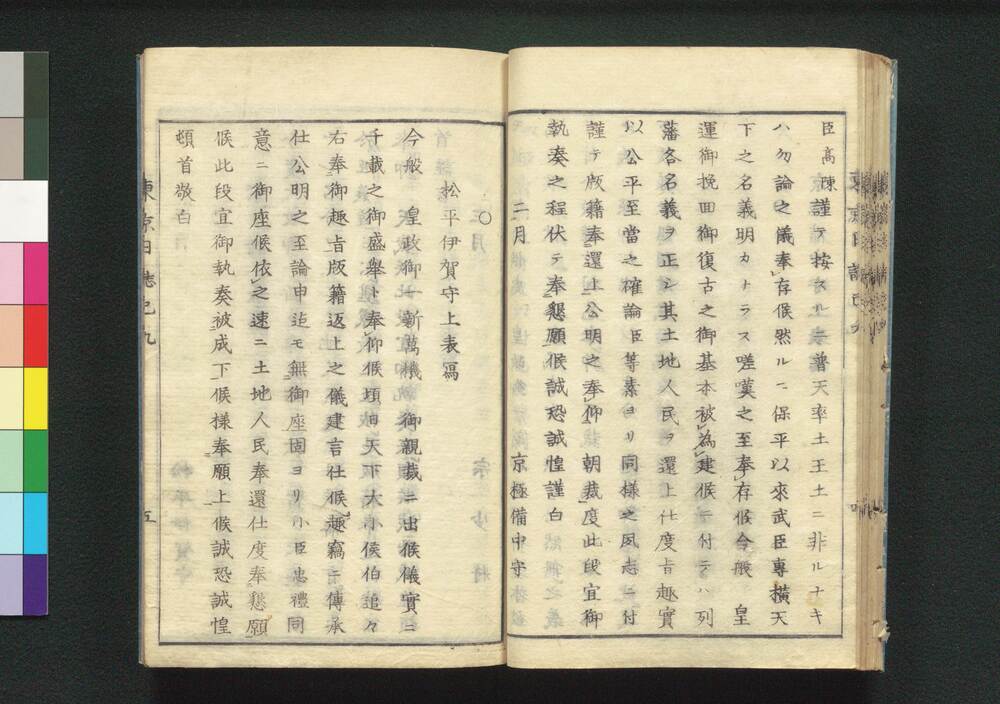 臣高陳謹テ按スルニ普天率土王土ニ非ルナキ
ハ勿論之儀奉存候然ルニ保平以來武臣專橫天
下之名義明カナラス嗟嘆之至奉存候今般　皇
運御挽回御復古之御基本被為建候ニ付テハ列
藩各名義ヲ正シ其土地人民ヲ還上仕度旨趣實
以公平至當之確論臣等素ヨリ同樣之夙志ニ付
謹テ版籍奉還上公明之奉仰　朝裁度此段宜御
執奏之程伏テ奉懇願候誠恐誠惶謹白
二月　京極備中守
〇
松平伊賀守上表寫
今般　皇政御一新萬機　御親裁ニ出候儀實ニ
千載之御盛舉ト奉仰候頃日天下大小侯伯追々
右奉御趣旨版籍返上之儀建言仕候趣竊ニ傳承
仕公明之至論申迄モ無御座固ヨリ小臣忠禮同
意ニ御座候依之速ニ土地人民奉還仕度奉懇願
候此段宜御執奏被成下候樣奉願上候誠恐誠惶
頓首敬白
東京日誌己九
五